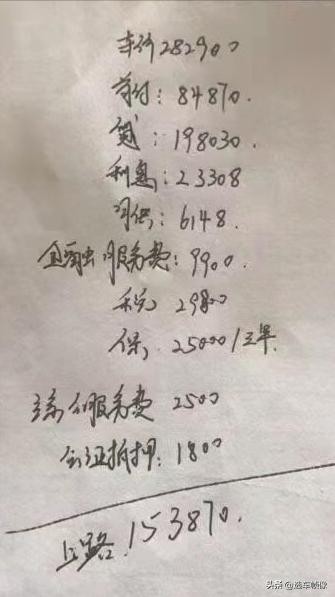 车价 282900
首付: 84870.
贷: 198030.
利息: 23308
月供: 6148.
金融服务费: 9900.
税 29800
保, 25000/三年.
综合服务费 2500
公证抵押: 1800
上路. 153870.
头条 @选车帧像